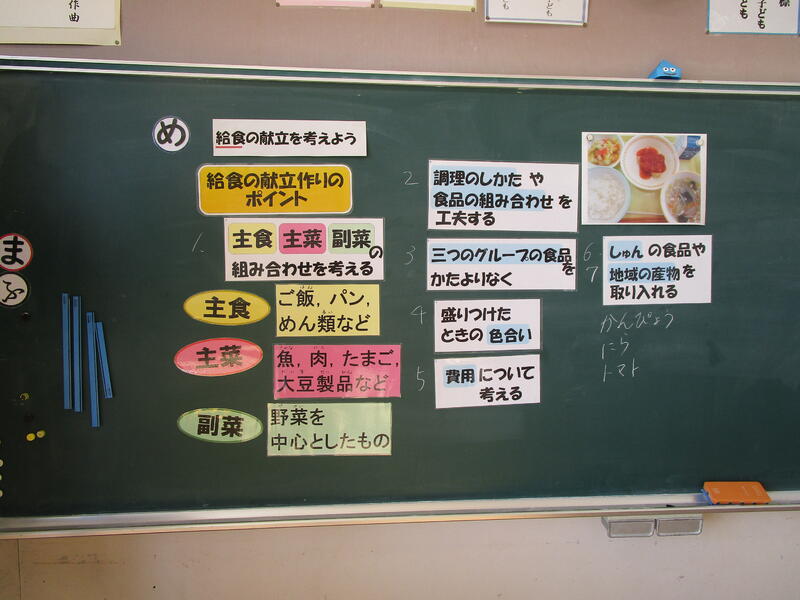 作曲
子ども
ども
め
給食の献立を考えよう
給食の献立作りの
ポイント
1.
主食 主菜 副菜の
組み合わせを考える
主食
ご飯, パン,
めん類など
主菜
魚, 肉, たまご,
大豆製品など
副菜
野菜を
中心としたもの
2
調理のしかた や
食品の組み合わせ を
工夫する
3
三つのグループの食品を
かたよりなく
4
盛りつけた
ときの 色合い
5
費用 について
考える
6
しゅん の食品や
7
地域の産物を
取り入れる
かんぴょう
にら
トマト
ま
ふ